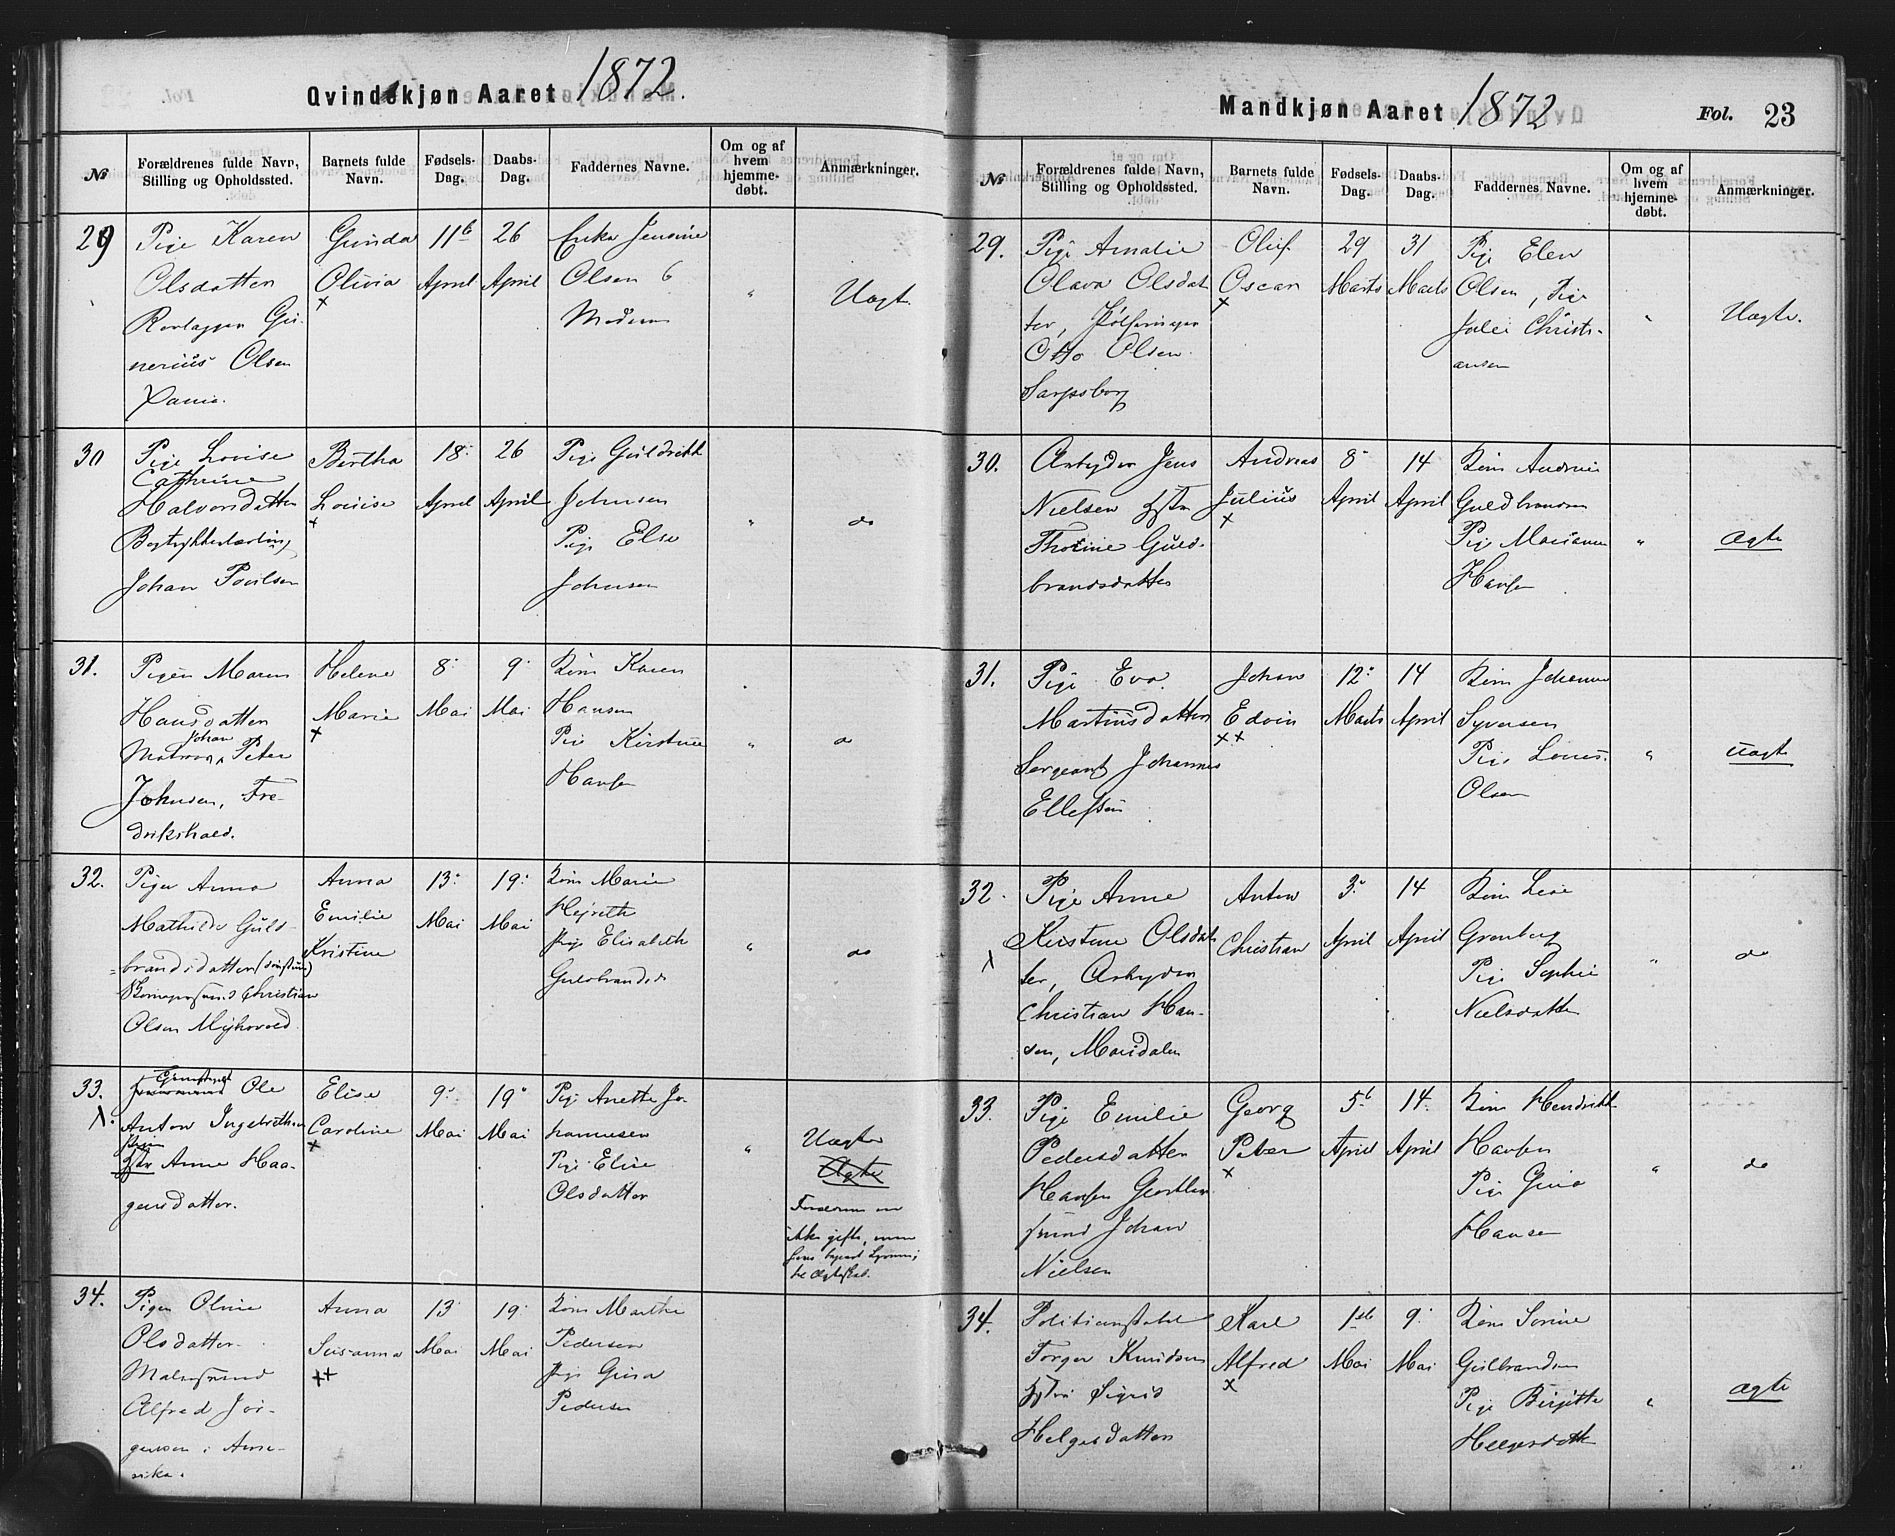 Qvindekjøn Aaret 1872.
№
Forældrenes fulde Navn,
Stilling og Opholdssted.
Barnets fulde
Navn.
Fødsels-
Dag.
Daabs-
Dag.
Faddernes Navne.
Om og af
hvem
hjemme-
døbt.
Anmærkninger.
29
Pige Karen
Olsdatter
Gu-
nerius Olsen
Gunda
Olivia
×
11te
April
26
April
Jensine
Olsen 6
Moderen
"
Uægte
30
Pige Lovise
Cathrine
Halvorsdatter
Bogtrykkerlærling
Johan Poulsen
Bertha
Louise
×
18:
April
26
April
Pige Guldrikk
Johnsen
Pige Else
Johnsen
"
do
31.
Pigen Maren
Hansdatter
Johan
Matros, Peter
Johnsen, Fre-
drikshald.
Helene
Marie
×
8:
Mai
9:
Mai
Kone Karen
Hansen
Pige Kirstine
Hansen
"
do
32.
Pigen Anna
Mathilde Guld-
=brandsdatter
Christian
Olsen
Anna
Emilie
Kristine
13:
Mai
19:
Mai
Kone Marie
Pige Elisabeth
Guldbrandsd.
"
do
33.
×.
Ole
Anton Ingebrethsen
Anne Haa-
gensdatter.
Elise
Caroline
×
9:
Mai
19:
Mai
Pige Anette Jo-
hannesen
Pige Elise
Olsdatter
"
Uægte
Ægte
ikke gifte, men
Ægteskab.
34.
Pigen Oline
Olsdatter.
Malersvend
Alfred Jør-
gensen i Ame-
rika.
Anna
Susanna
××
13
Mai
19:
Mai
Kone Marthe
Pedersen
Pige Gina
Pedersen
Mandkjøn Aaret 1872
Fol. 23
№
Forældrenes fulde Navn,
Stilling og Opholdssted.
Barnets fulde
Navn.
Fødsels-
Dag.
Daabs-
Dag.
Faddernes Navne.
Om og af
hvem
hjemme-
døbt.
Anmærkninger.
29.
Pige Amalie
Olava Olsdat
ter,
Otto Olsen.
Sarpsborg
Oluf
Oscar
×
29
Marts
31
Marts
Pige Elen
Olsen, Pige
Julie Christi-
ansen
"
Uægte.
30.
Arbyder Jens
Nielsen Hstr
Thorine Guld-
brandsdatter
Andreas
Julius
×
8
April
14
April
Kone Andrine
Guldbrandsen
Pige Marianne
Hansen
"
Ægte
31.
Pige Eva
Martinsdatter
Sergeant Johannes
Ellefsen
Johan
Edvin
××
12:
Marts
14
April
Kone Johanne
Syversen
Pige Lovise
Olsen
"
Uægte
32.
×
Pige Anne
Kristine Olsdat
ter, Arbyder
Christian Han-
sen, Maridalen
Anton
Christian
3:
April
14
April
Kone Lene
Grønberg
Pige Sophie
Nielsdatter
"
do
33.
Pige Emilie
Pedersdatter
Hansen
svend Johan
Nielsen
Georg
Peter
×
5te
April
14.
April
Kone Hendrikke
Hansen
Pige Gina
Hansen
"
do
34.
Politiconstabel
Torger Knudsen
Hstr Sigrid
Helgesdatter
Karl
Alfred
×
1ste
Mai
9:
Mai
Kone Sorine
Gulbrandsen
Pige Birgitte
Helgesdatter
"
Ægte